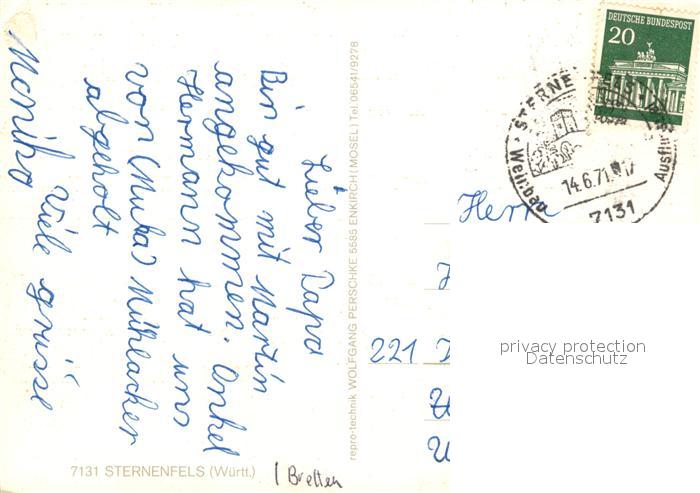 Lieber Papa
Bin gut mit Martin
angekommen. Onkel
Hermann hat uns
von (Muha) Mühlacker
abgeholt
Viele grüsse
Monika
repro-technik WOLFGANG PERSCHKE 5585 ENKIRCH (MOSEL) Tel. 06541/9278
7131 STERNENFELS (Württ.)
Bretten
DEUTSCHE BUNDESPOST
20
14.6.71
7131
Herrn
221
privacy protection
Datenschutz